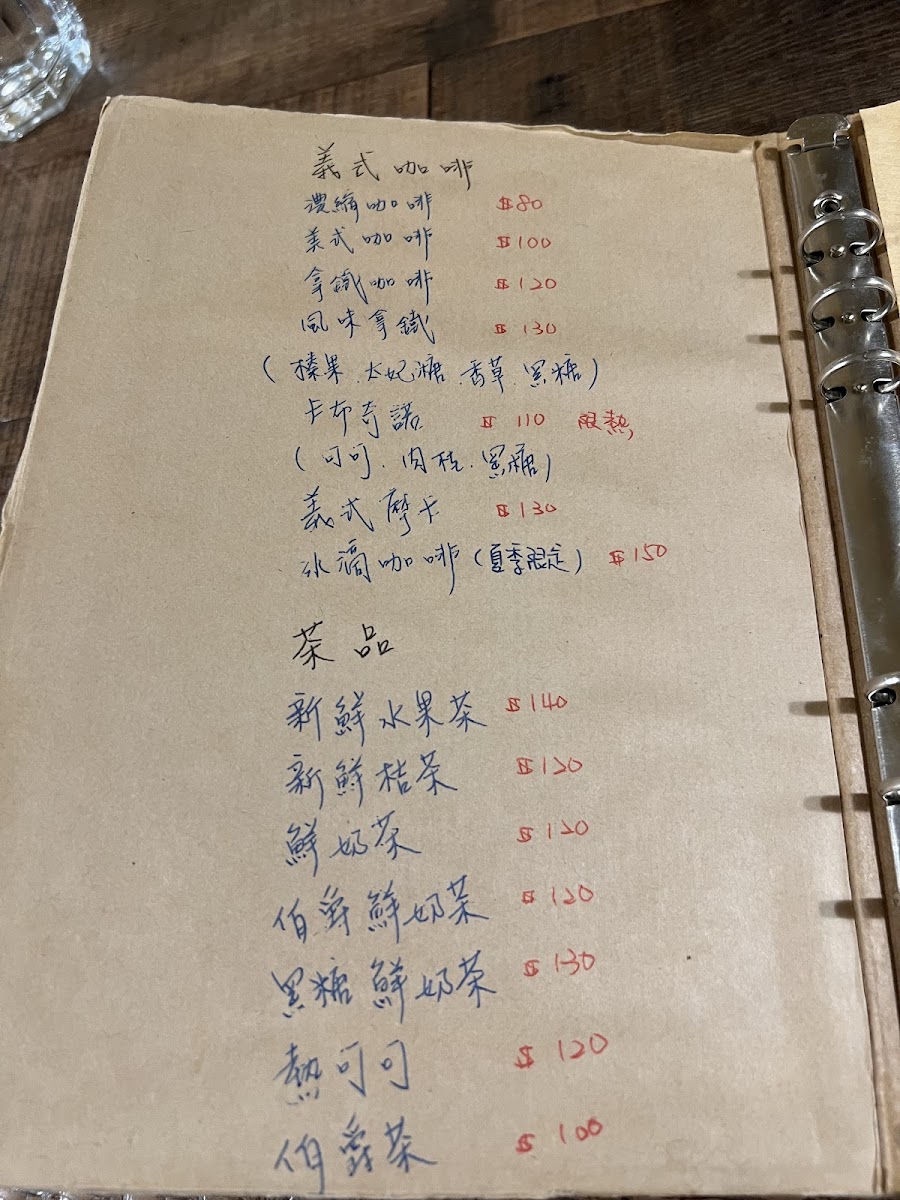 義式咖啡
濃縮咖啡 $80
美式咖啡 $100
拿鐵咖啡 $120
風味拿鐵 $130
(榛果.太妃糖.香草.黑糖)
卡布奇諾 $110 限熱
(可可.肉桂.黑糖)
義式摩卡 $130
冰滴咖啡(夏季限定) $150
茶品
新鮮水果茶 $140
新鮮桔茶 $120
鮮奶茶 $120
伯爵鮮奶茶 $120
黑糖鮮奶茶 $130
熱可可 $120
伯爵茶 $100